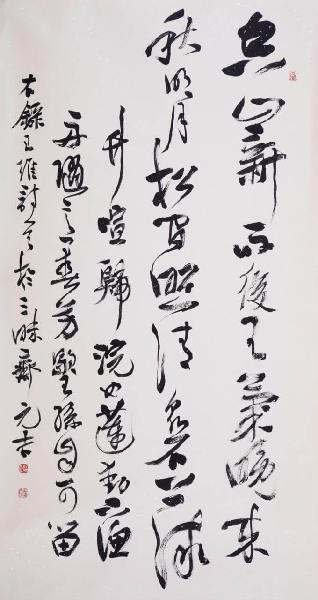 空山新雨後天氣晚來
秋明月松間照清泉石上流
竹喧歸浣女蓮動下漁
舟隨意春芳歇王孫自可留
右錄王維詩於三昧齋 元吉